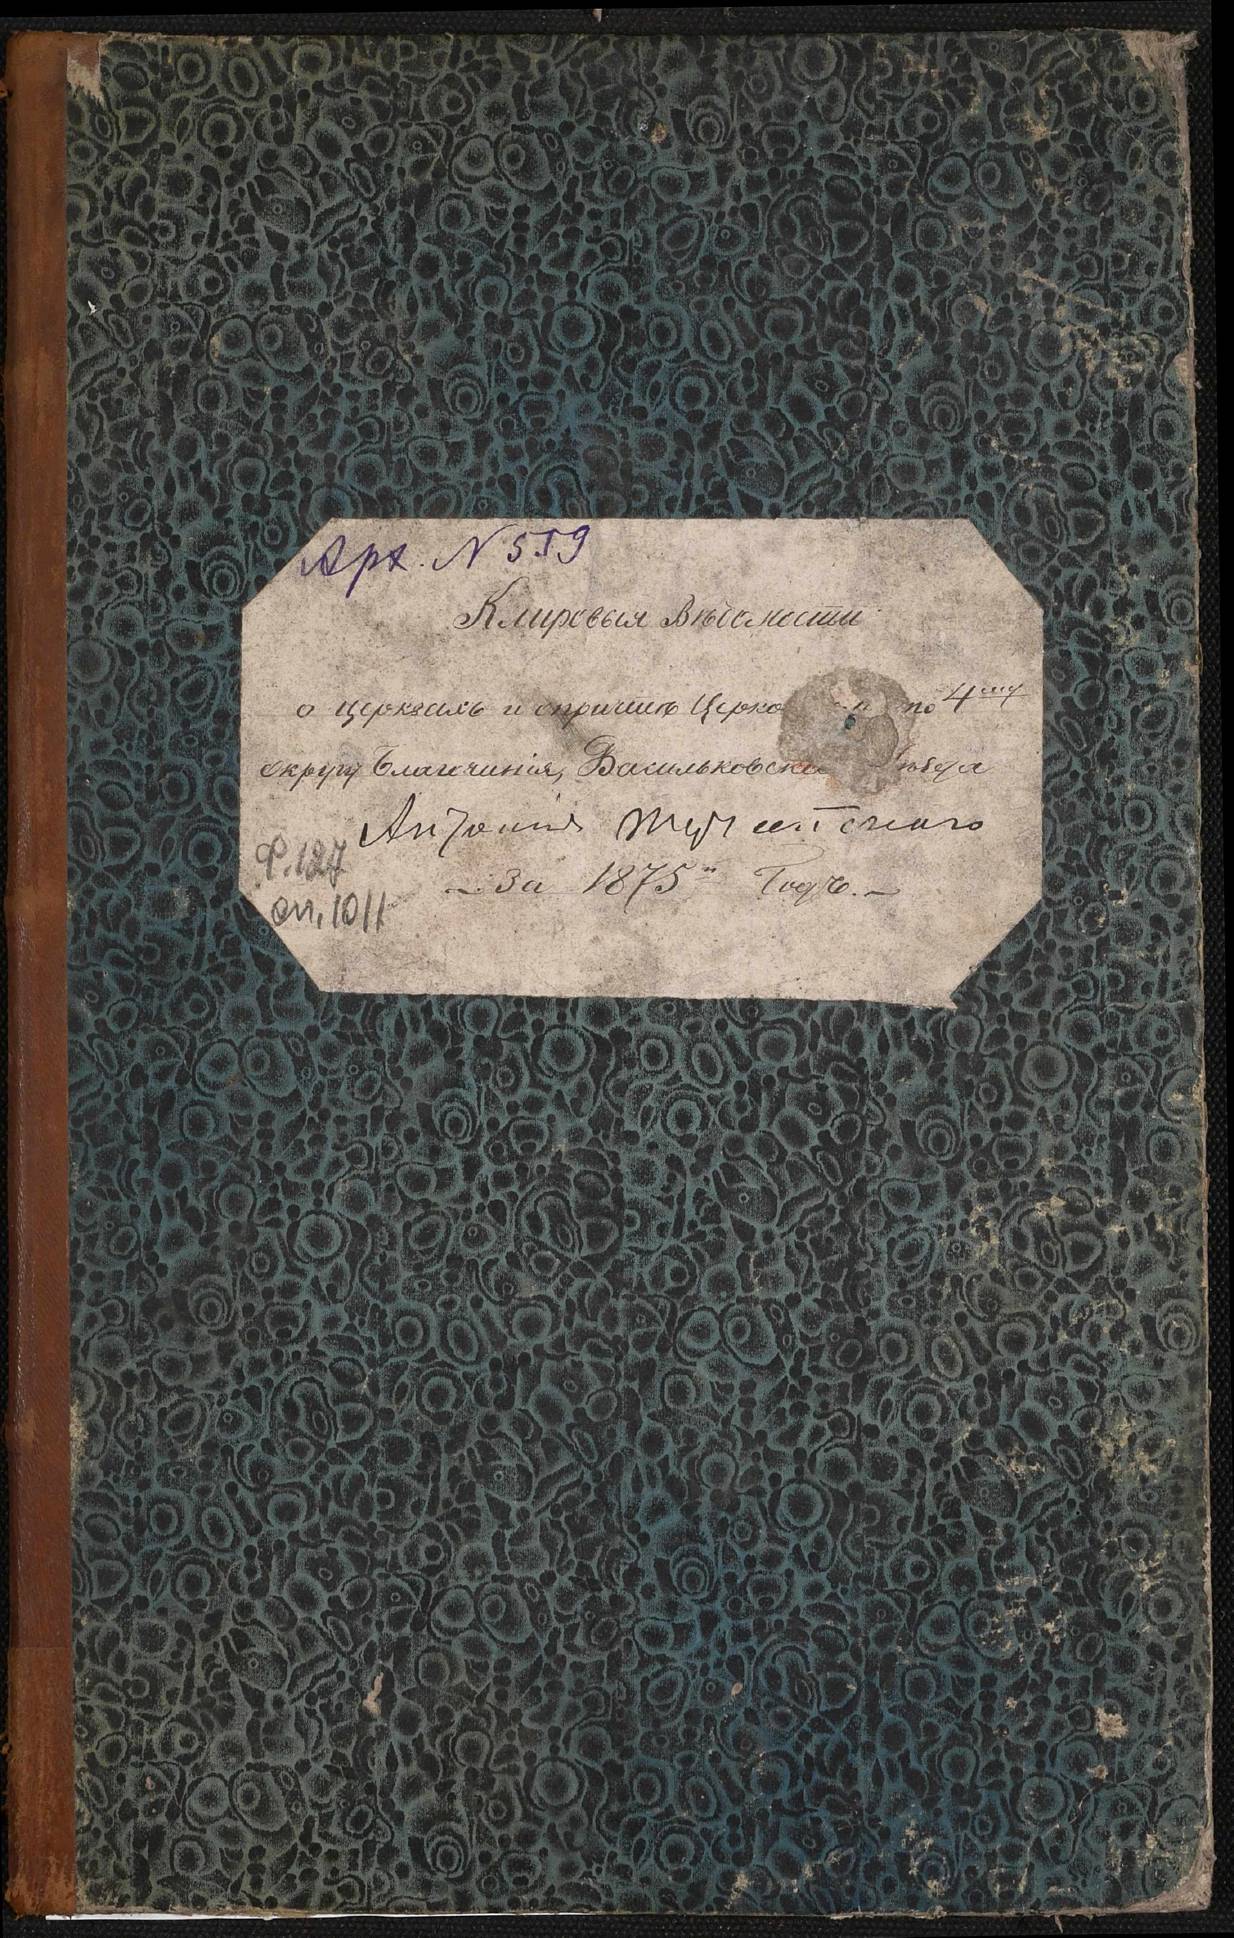 Арх. N 559
Клировыя Вѣдомости
о церквахъ и о причтѣ Церко по 4му
округу Благочинія, Васильковска уѣзда
Антонія
Ф. 127
— За 1875й Годъ. —
оп. 1011